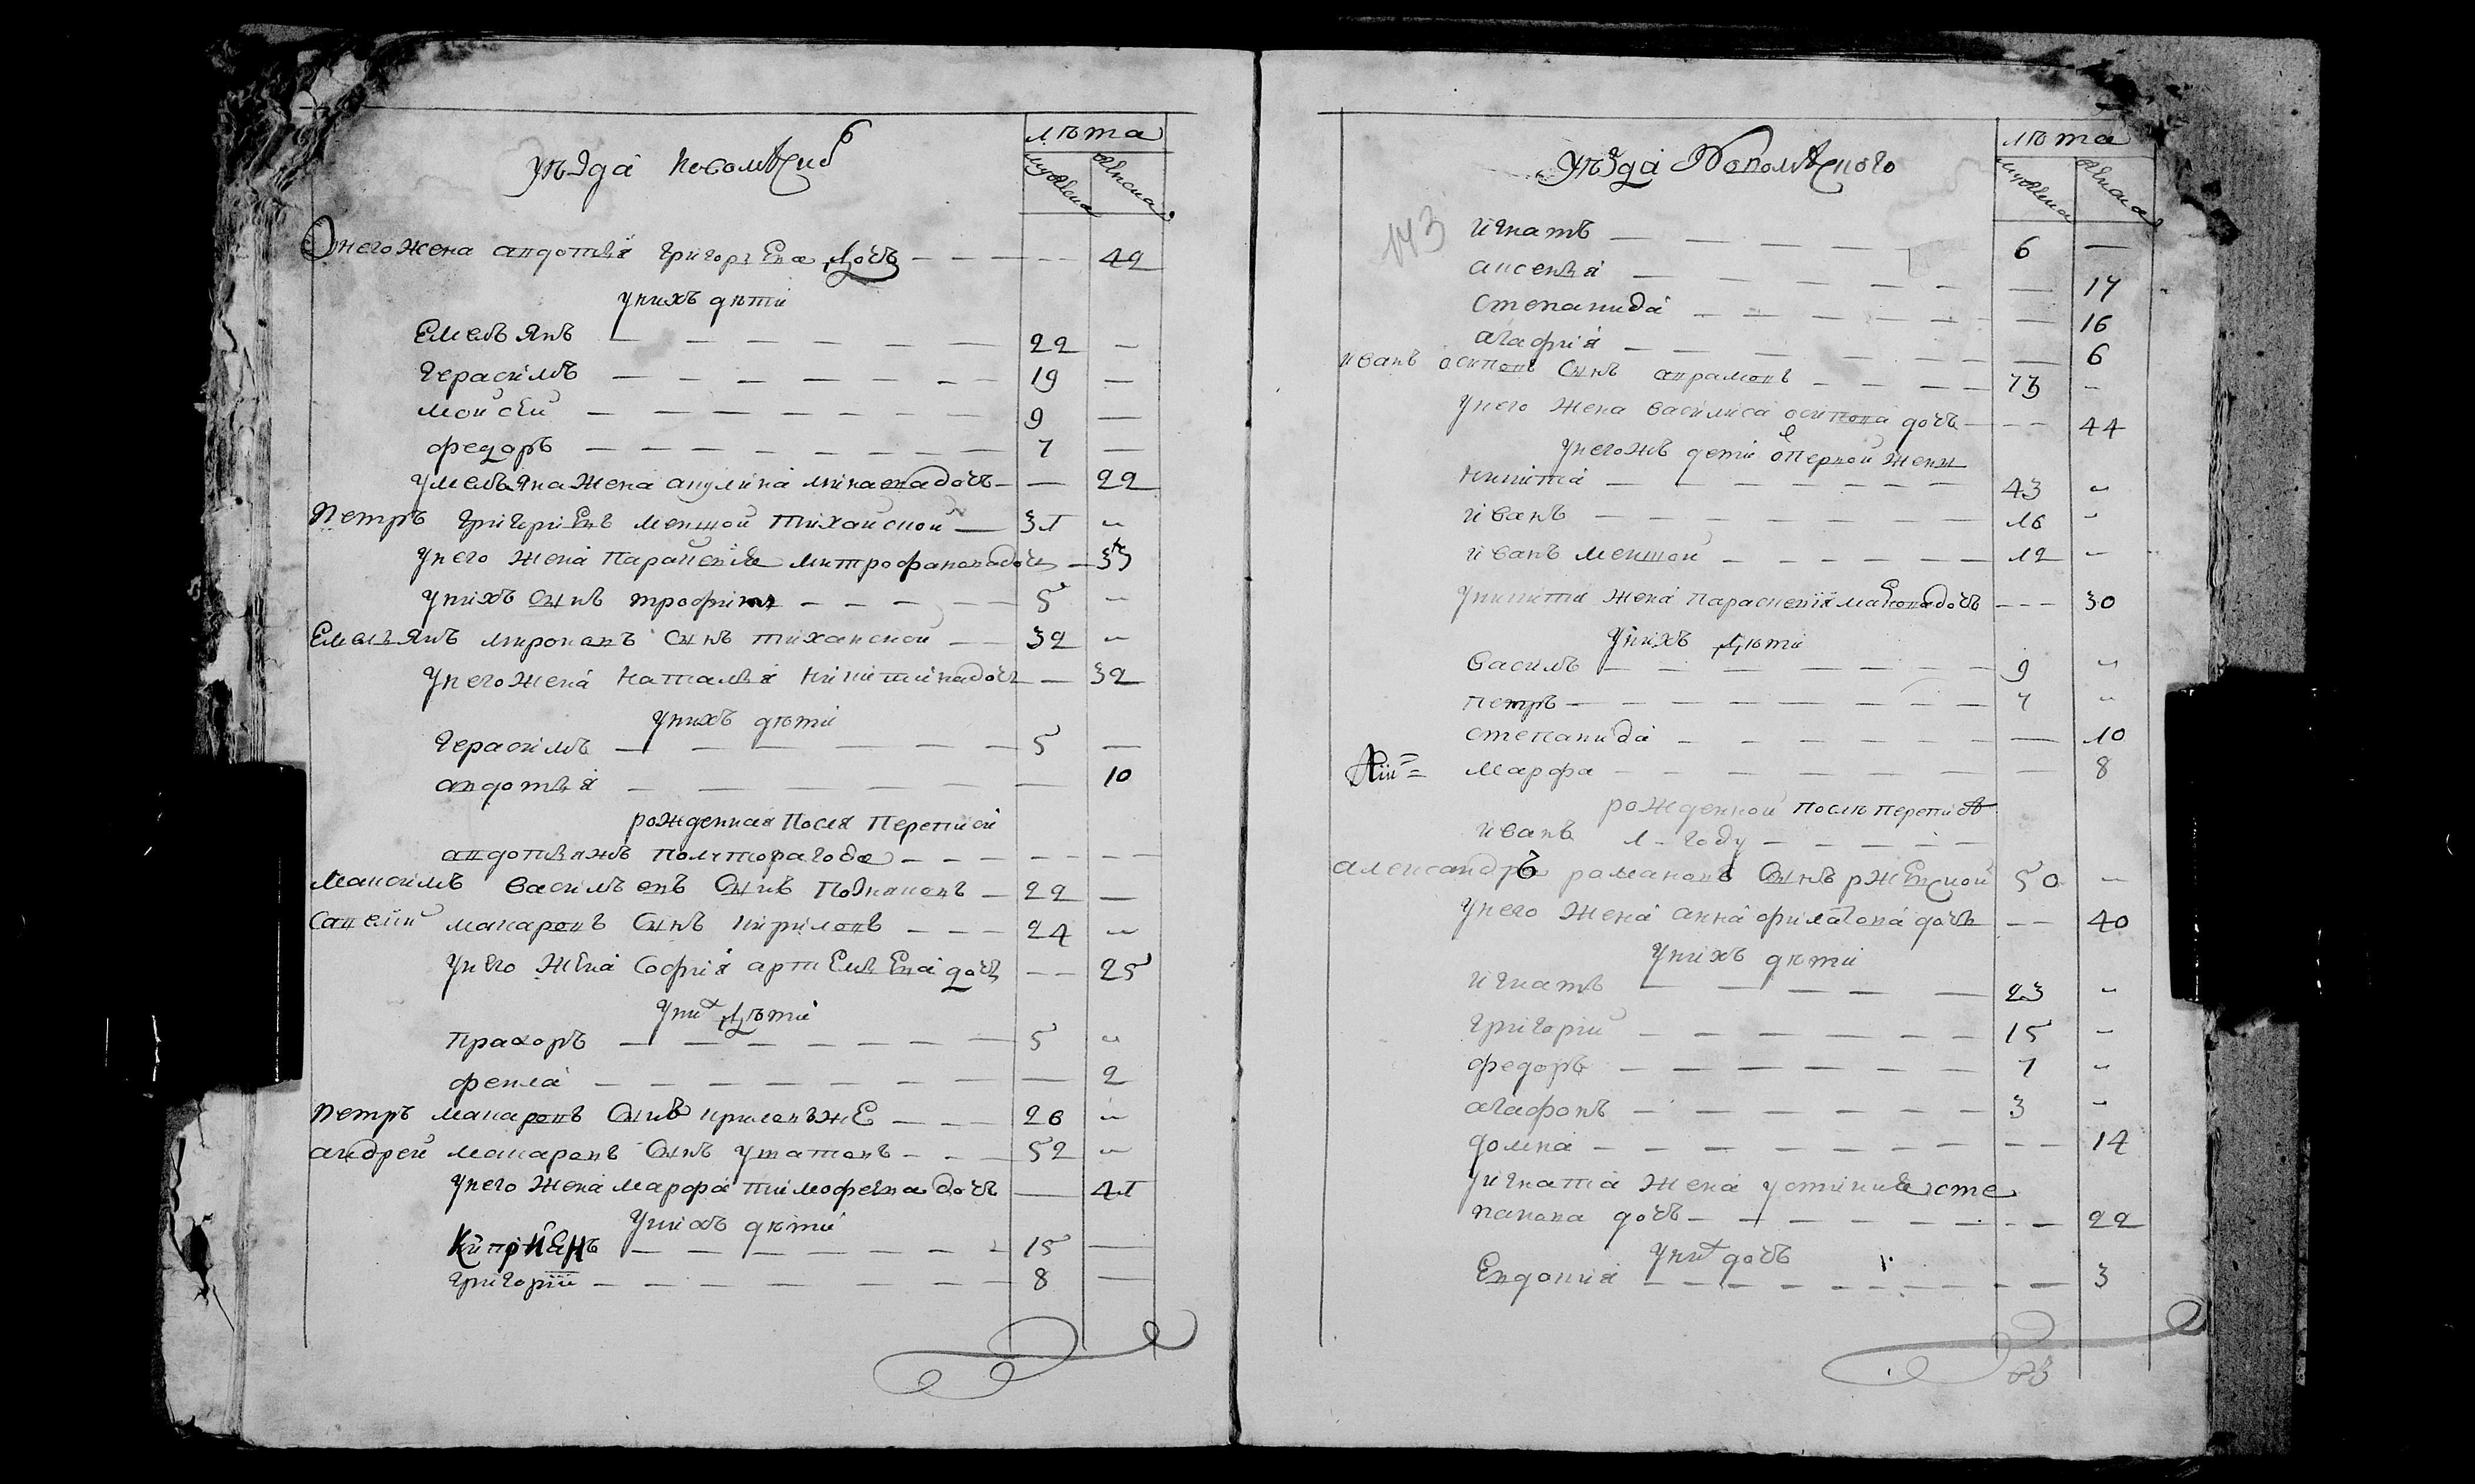 уѣзда
лѣта
мужска
женска
у него жена авдотья григорьева дочь 42
у нихъ дѣти
Емельянъ 22
герасимъ 19
моисей 9
федоръ 7
у мельяна жена акулина минаева дочь 22
Петръ григориевъ меншой тиханской 31
у него жена парасковья митрофанова дочь 33
у нихъ сынъ трофимъ 5
Емельянъ миронавъ сынъ тиханской 32
у него жена наталья никитина дочь 32
у нихъ дѣти
герасимъ 5
авдотья 10
рожденная посля переписи
авдотья жъ полутора года
Максимъ васильевъ сынъ 22
Савелий макаровъ сынъ кириловъ 24
у него жена софия артемьева дочь 25
у них дѣти
прахоръ 5
фекла 2
Петръ макаровъ сынъ криловъ же 26
андрей макаровъ сынъ ушатовъ 52
у него жена марфа тимофевна дочь 41
у нихъ дѣти
Киприянъ 15
григорий 8
уѣзда
лѣта
мужска
женска
143
игнатъ 6
аксенья 17
степанида 16
агафия 6
иванъ осиповъ сынъ аврамовъ 73
у него жена василиса осипова дочь 44
у него жъ дети о первой жены
никита 43
иванъ 16
иванъ меншой 12
у никиты жена парасковия дочь 30
у нихъ дѣти
василь 9
петръ 7
степанида 10
марфа 8
рожденной послѣ переписи
иванъ 1 году
александръ рамановъ сынъ ржевской 50
у него жена анна филатова дочь 40
у нихъ дѣти
игнатъ 23
григорий 15
федоръ 7
агафонъ 3
домна 14
у игната жена устинья сте
панова дочь 22
у них дочь
Евдокия 3